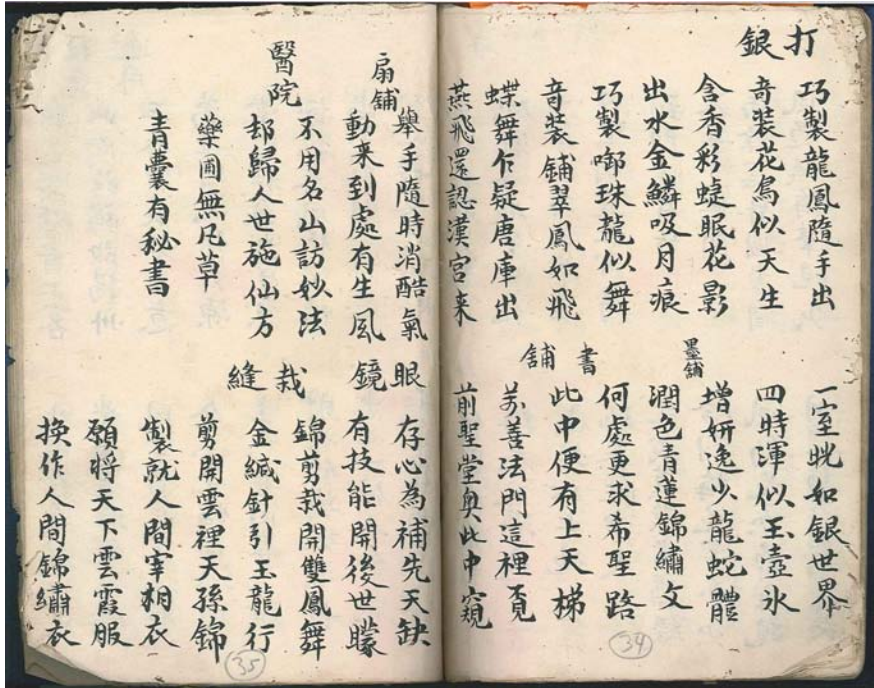 打銀
巧製龍鳳隨手出
奇裝花鳥似天生
含香彩蜨眠花影
出水金鱗吸月痕
巧製啣珠龍似舞
奇裝鋪翠鳳如飛
蝶舞乍疑唐庫出
燕飛還認漢宮来
一室晄如銀世界
四時渾似玉壺氷
墨舖
增妍逸少龍蛇體
潤色青蓮錦繡文
書舖
何處更求希聖路
此中便有上天梯
善法門這裡覔
前聖堂奧此中窺
34
扇舖
舉手隨時消酷氣
動来到處有生風
醫院
不用名山訪妙法
却歸人世施仙方
藥圃無凡草
青囊有秘書
眼鏡
存心為補先天缺
有技能開後世矇
裁縫
錦剪裁開雙鳳舞
金緘針引玉龍行
剪開雲裡天孫錦
製就人間宰相衣
願將天下雲霞服
換作人間錦繡衣
35